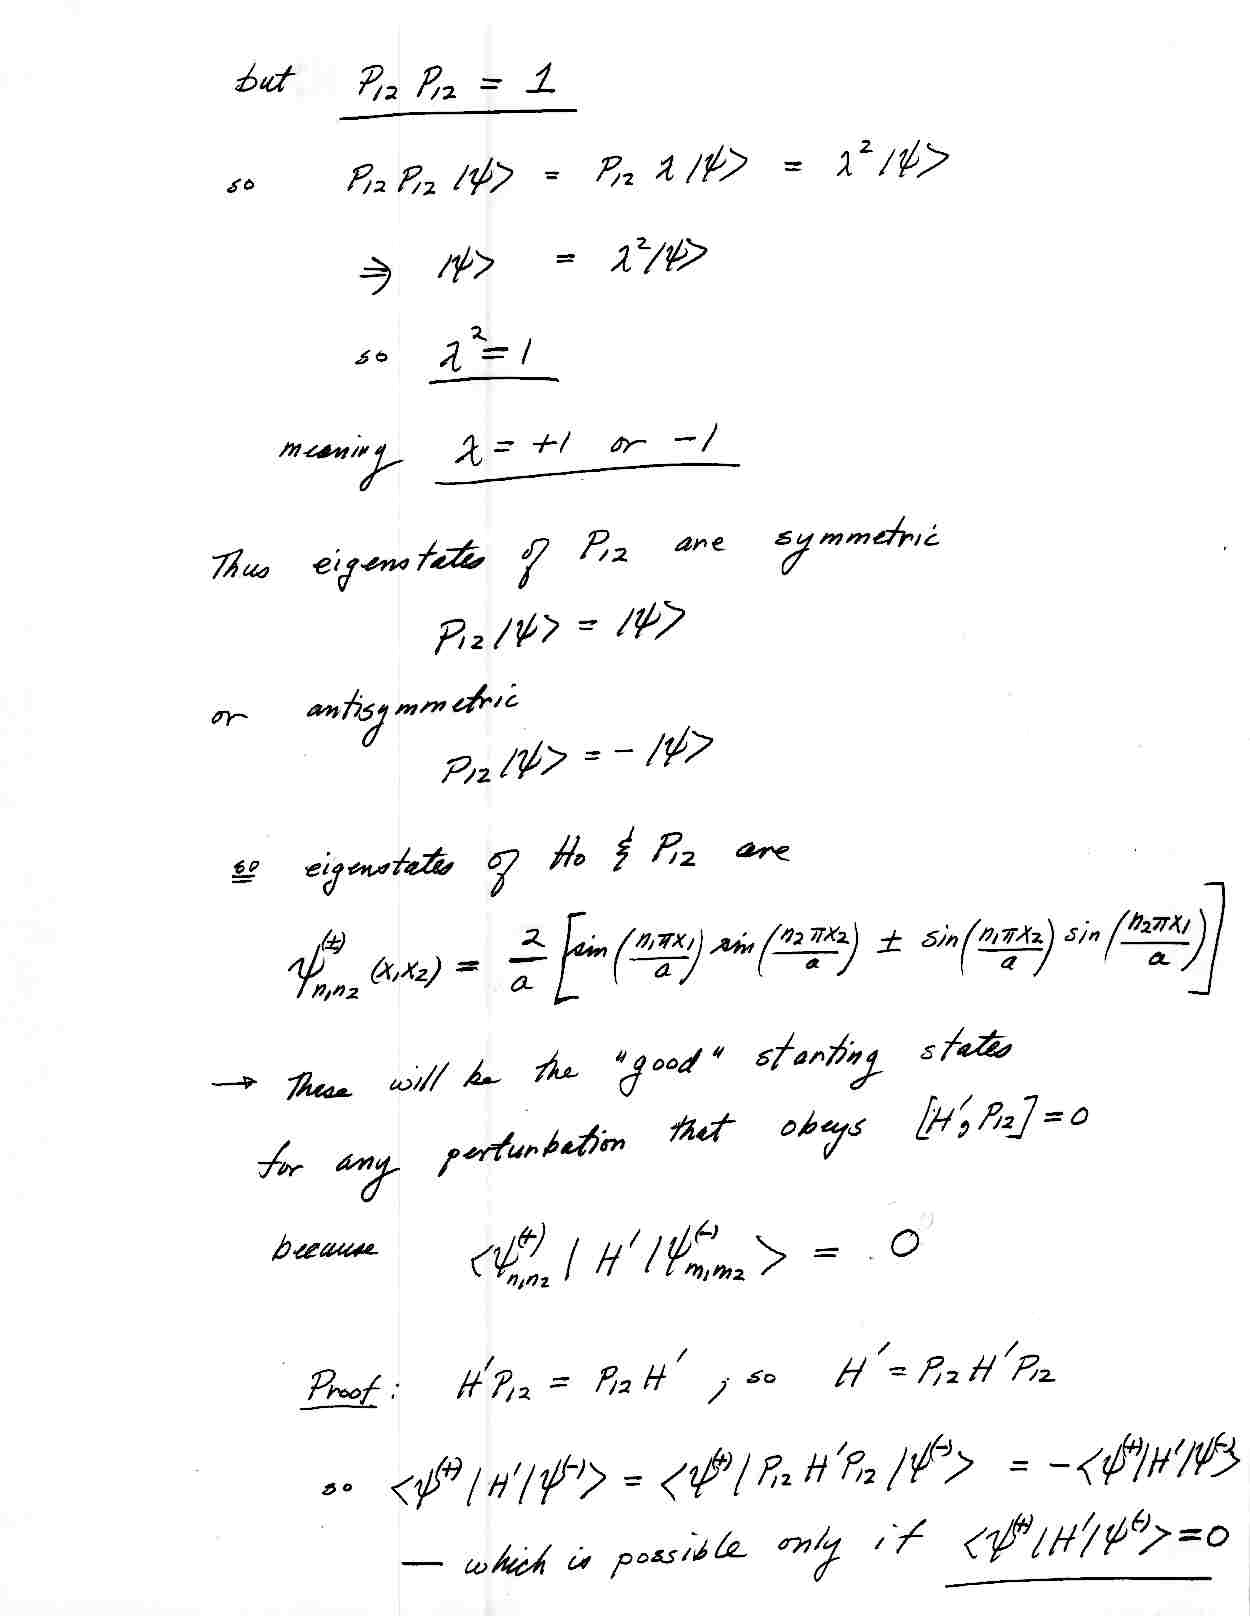 but P₁₂ P₁₂ = 1
so P₁₂ P₁₂ |ψ> = P₁₂ λ |ψ> = λ² |ψ>
⇒ |ψ> = λ² |ψ>
so λ² = 1
meaning λ = +1 or -1
Thus eigenstates of P₁₂ are symmetric
P₁₂ |ψ> = |ψ>
or antisymmetric
P₁₂ |ψ> = - |ψ>
so eigenstates of H₀ & P₁₂ are
ψ^(±)_{n₁n₂} (x₁x₂) = 2/a [ sin (n₁πx₁/a) sin (n₂πx₂/a) ± sin (n₁πx₂/a) sin (n₂πx₁/a) ]
→ These will be the "good" starting states
for any perturbation that obeys [H', P₁₂] = 0
because <ψ^(+)_{n₁n₂} | H' | ψ^(-)_{m₁m₂} > = 0
Proof: H'P₁₂ = P₁₂ H' , so H' = P₁₂ H' P₁₂
so <ψ^(+) | H' | ψ^(-)> = <ψ^(+) | P₁₂ H' P₁₂ | ψ^(-)> = - <ψ^(+) | H' | ψ^(-)>
— which is possible only if <ψ^(+) | H' | ψ^(-)> = 0